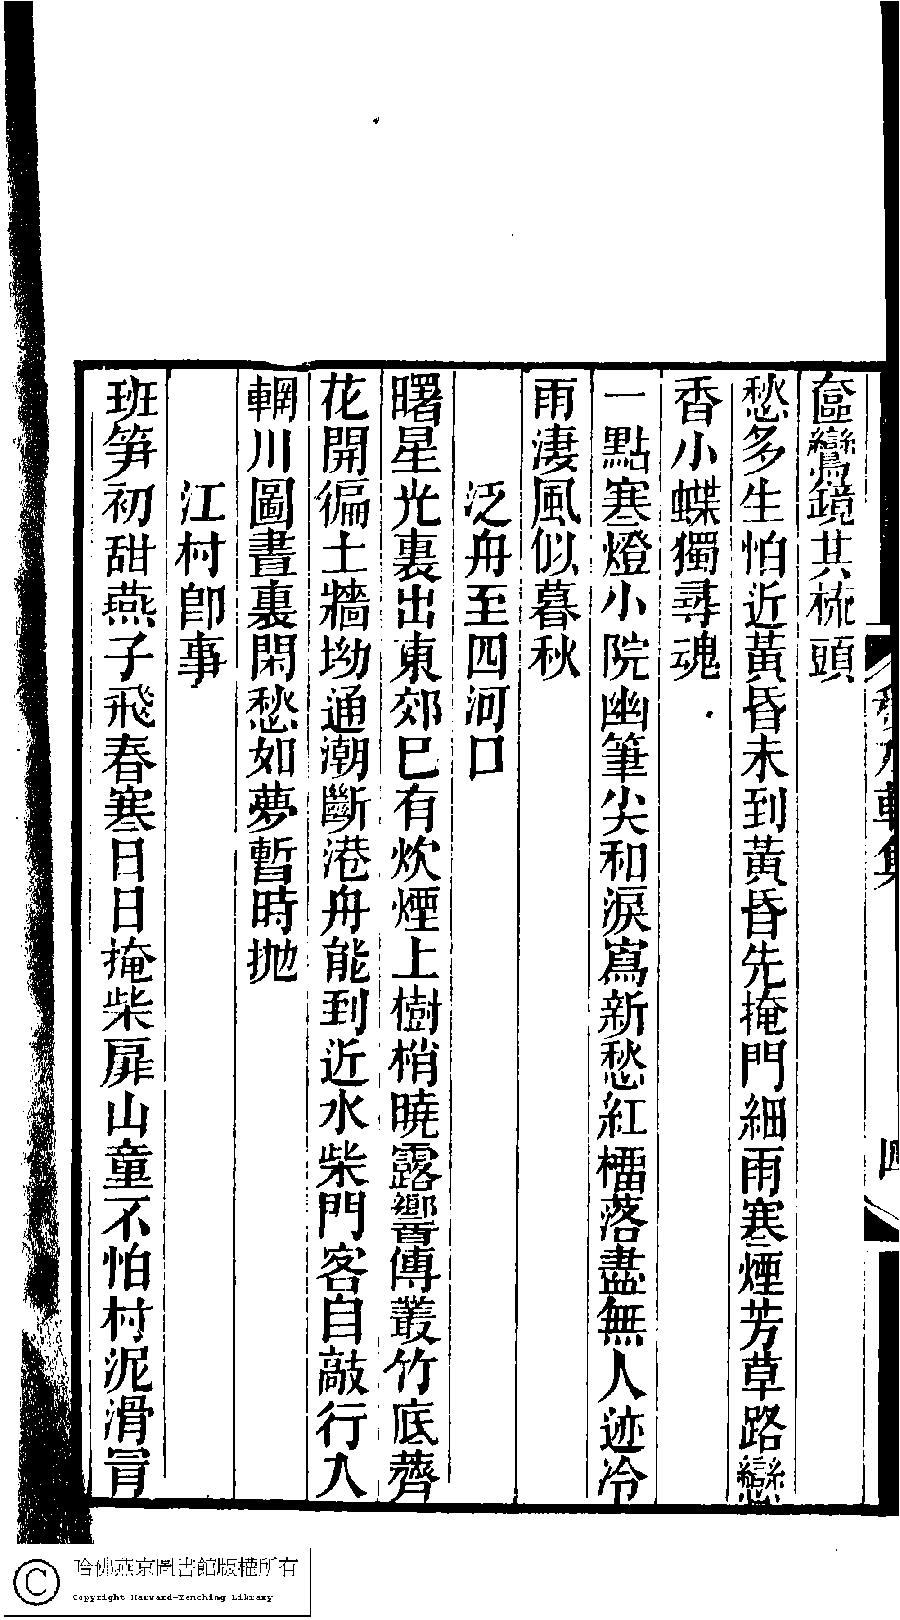 奩鸞鏡共梳頭
愁多生怕近黃昏未到黃昏先掩門細雨寒煙芳草路戀
香小蝶獨尋魂
一點寒燈小院幽筆尖和淚寫新愁紅榴落盡無人迹冷
雨淒風似暮秋
泛舟至四河口
曙星光裏出東郊已有炊煙上樹梢曉露響傳叢竹底薺
花開徧土牆坳通潮斷港舟能到近水柴門客自敲行入
輞川圖畫裏閑愁如夢暫時拋
江村卽事
班笋初甜燕子飛春寒日日掩柴扉山童不怕村泥滑冒
四
哈佛燕京圖書館版權所有
Copyright Harvard-Yenching Library